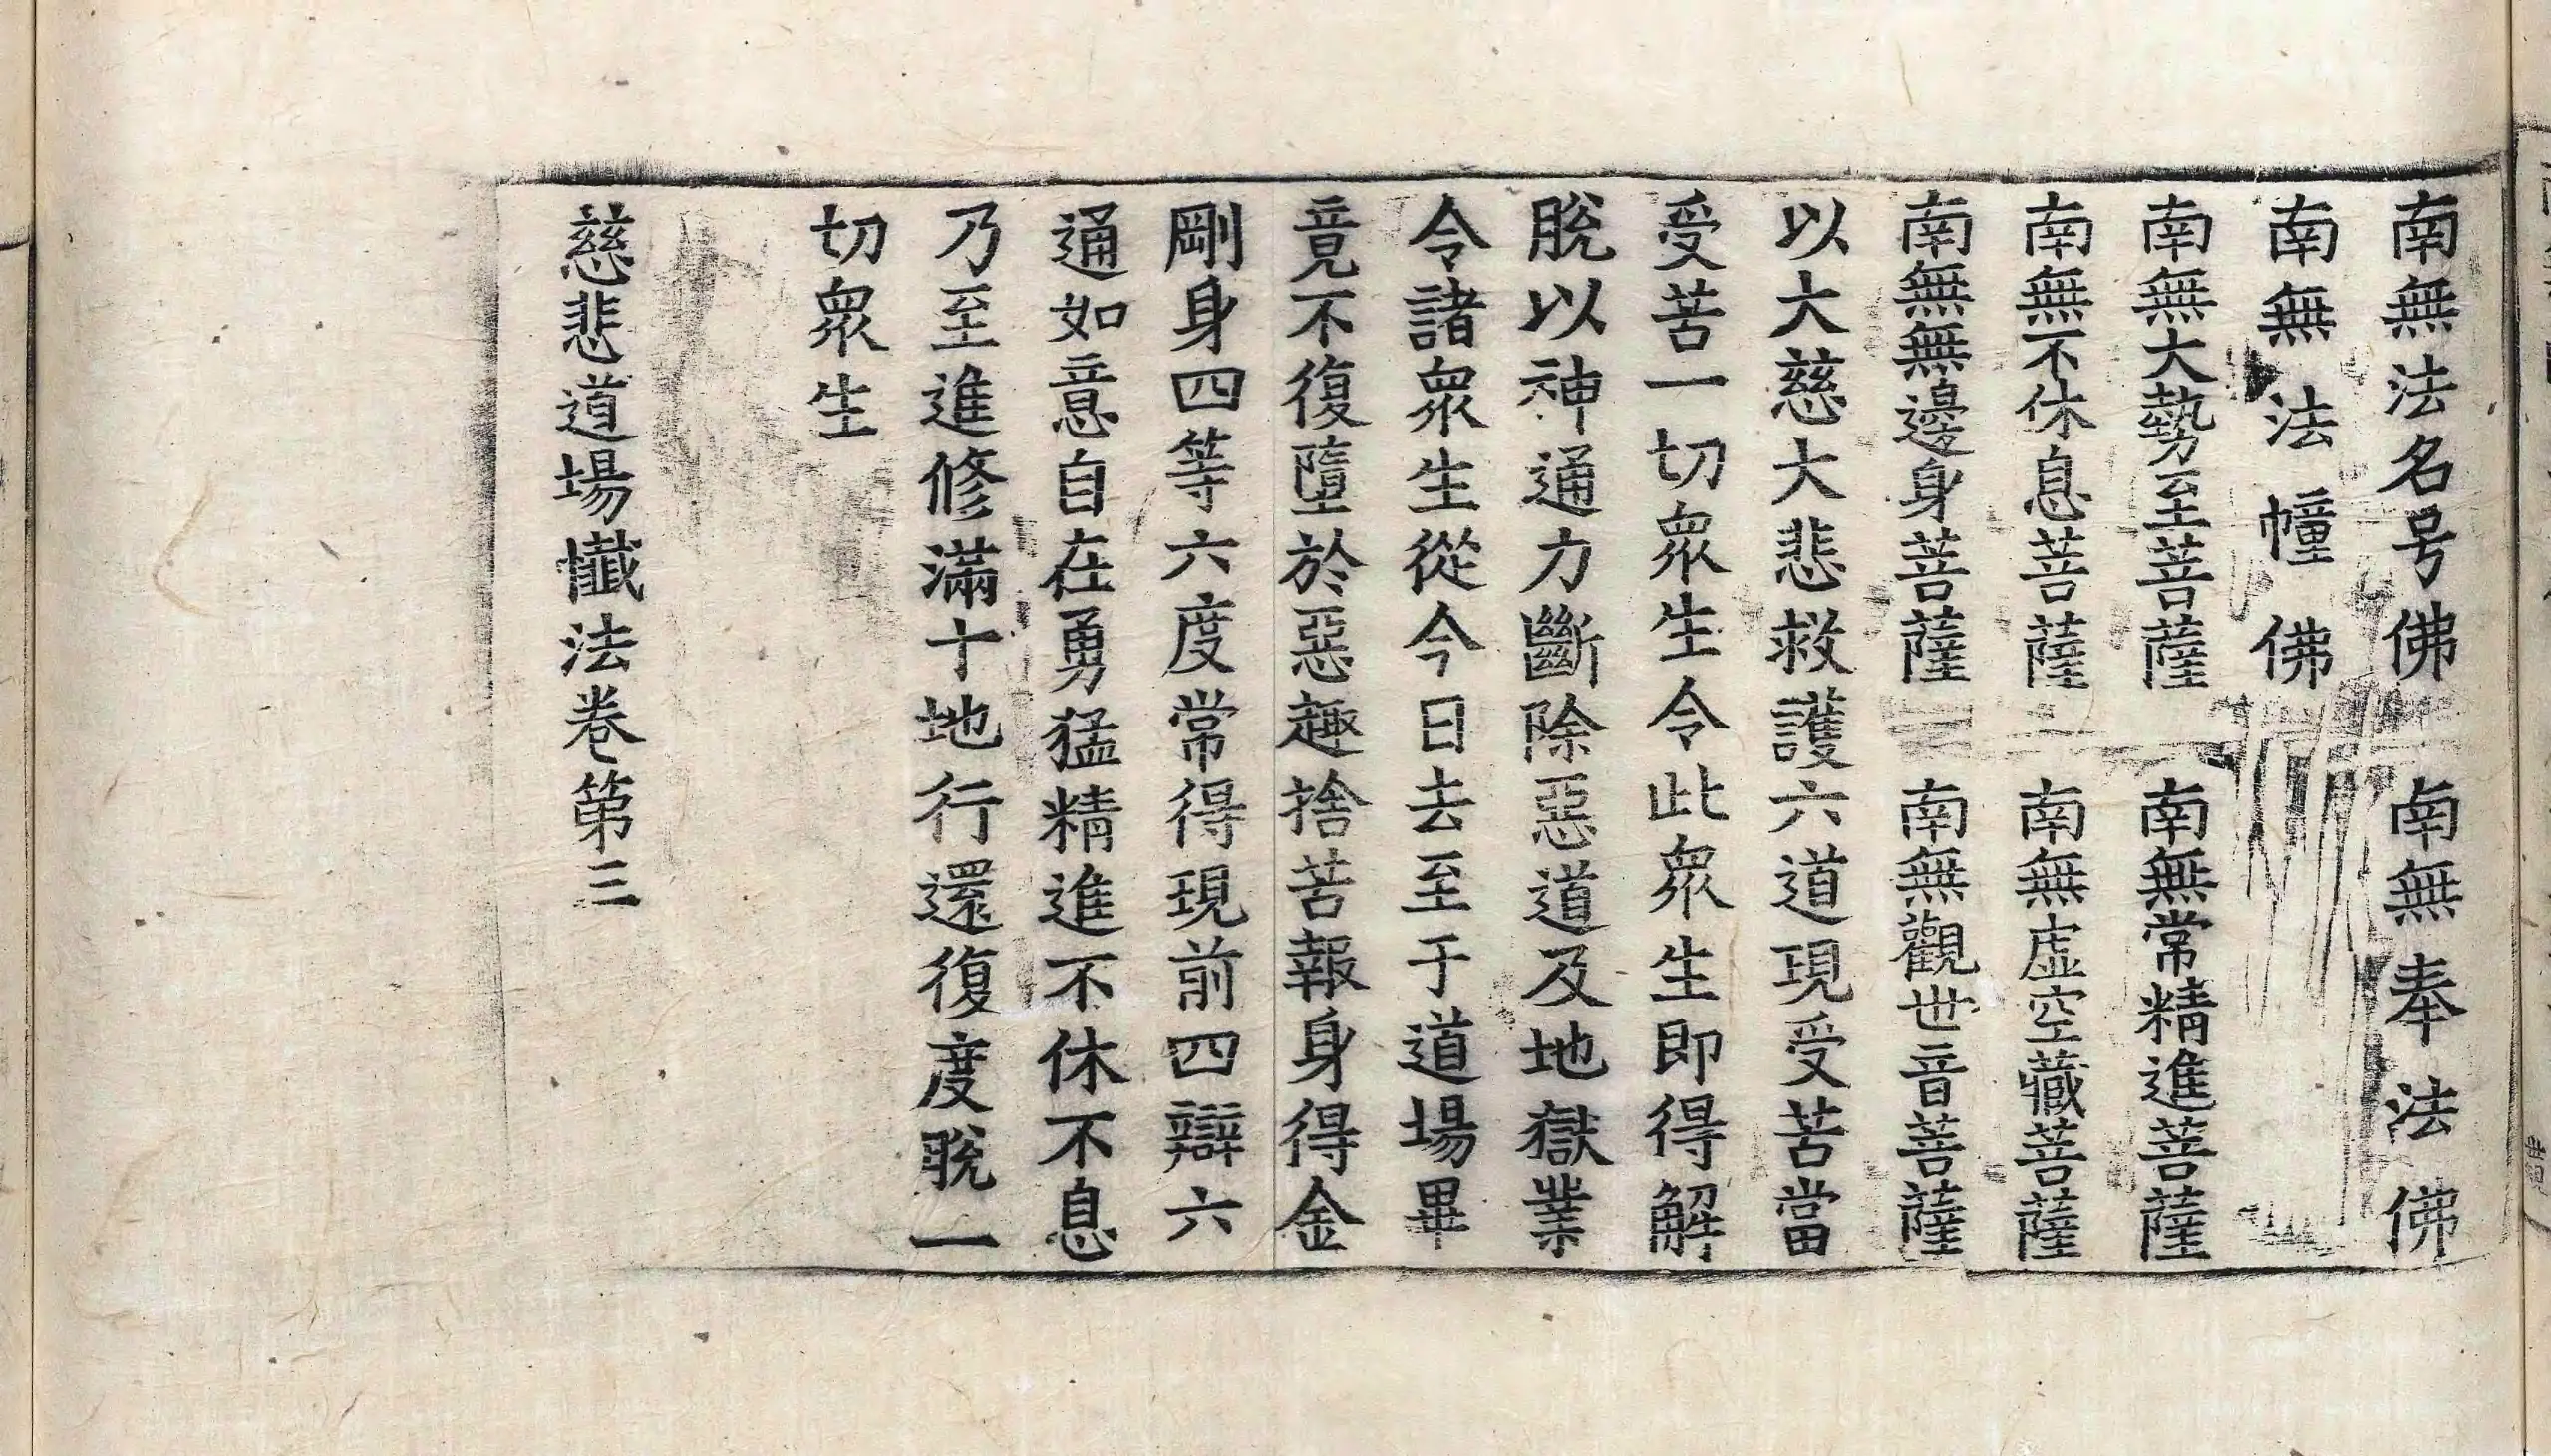 南無法名号佛 南無奉法佛
南無法幢佛
南無大勢至菩薩 南無常精進菩薩
南無不休息菩薩 南無虛空藏菩薩
南無無邊身菩薩 南無觀世音菩薩
以大慈大悲救護六道現受苦當
受苦一切衆生令此衆生即得解
脫以神通力斷除惡道及地獄業
令諸衆生從今日去至于道場畢
竟不復墮於惡趣捨苦報身得金
剛身四等六度常得現前四辯六
通如意自在勇猛精進不休不息
乃至進修滿十地行還復度脫一
切衆生
慈悲道場懺法卷第三